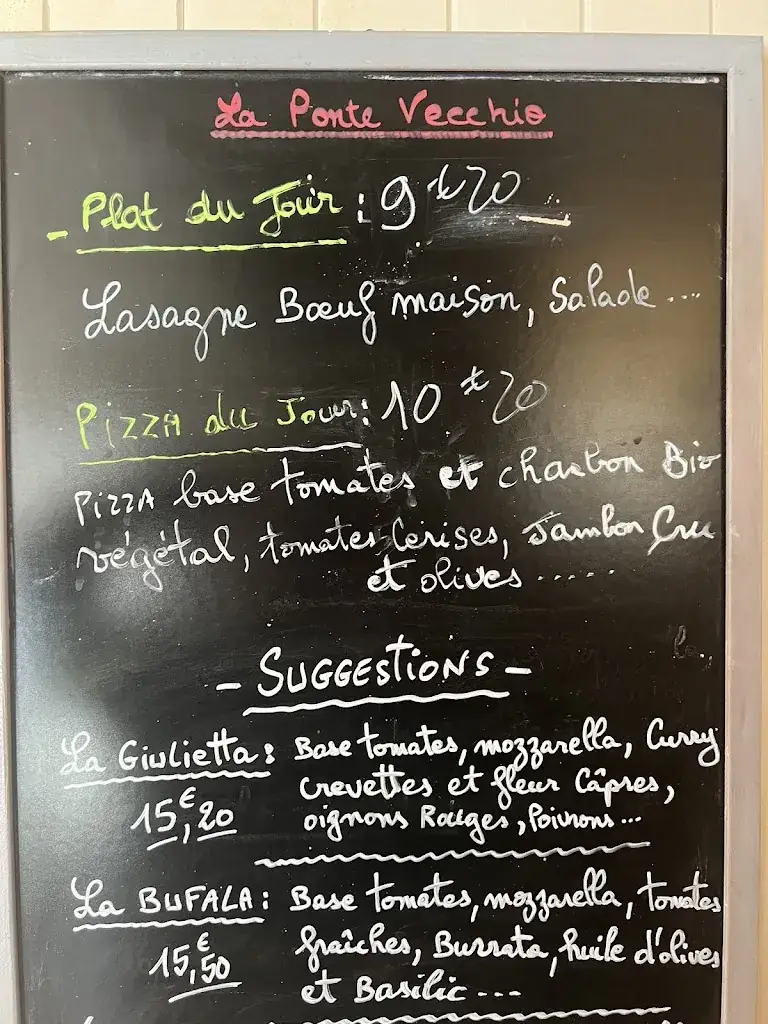 La Ponte Vecchio
- Plat du Jour : 9€20
Lasagne Bœuf maison, Salade ...
Pizza du Jour : 10€20
Pizza base tomates et charbon Bio
végétal, tomates Cerises, Jambon Cru
et olives .....
- SUGGESTIONS -
La Giulietta : Base tomates, mozzarella, Curry
Crevettes et fleur Câpres,
15,€20 oignons Rouges, Poivrons ...
La BUFALA : Base tomates, mozzarella, tomates
fraîches, Burrata, huile d'olives
15,€50 et Basilic ...